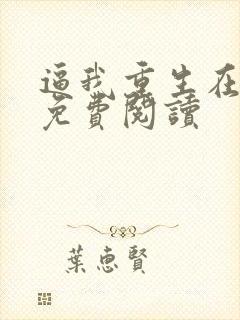 逼我重生在
免費閱讀
葉惠賢